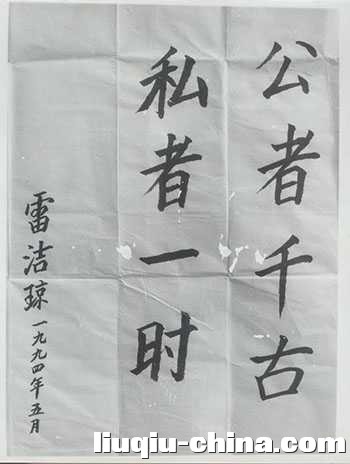 公者千古
私者一时
雷洁琼 一九九四年五月
liuqiu-china.com